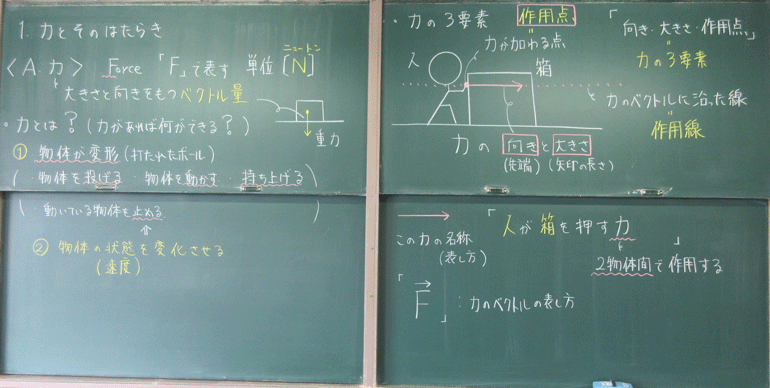 1. 力とそのはたらき
〈A. 力〉 Force 「F」で表す 単位〔N〕
ニュートン
大きさと向きをもつベクトル量
重力
○力とは？(力があれば何ができる？)
① 物体が変形(打たれたボール)
(・物体を投げる ・物体を動かす ・持ち上げる)
(・動いている物体を止める )
② 物体の状態を変化させる
(速度)
・力の3要素 作用点
「向き・大きさ・作用点」
力の3要素
力が加わる点
人
箱
力のベクトルに沿った線
作用線
力の 向き と 大きさ
(先端) (矢印の長さ)
この力の名称
(表し方)
「人が箱を押す力」
2物体間で作用する
「F」:力のベクトルの表し方